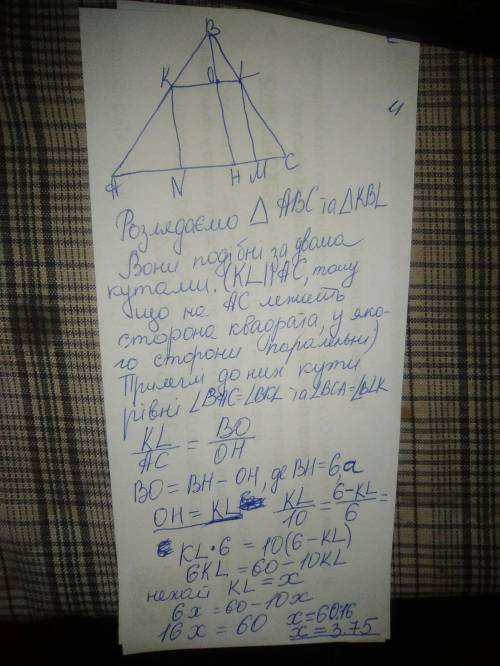 B
K O L
A N H M C
Розглядаємо △ ABC та △KBL
Вони подібні за двома
кутами. (KL||AC, тому
що на AC лежить
сторона квадрата, у яко-
го сторони паралельні)
Прилеглі до них кути
рівні ∠BAC=∠BKL та ∠BCA=∠BLK
KL/AC = BO/OH
BO = BH - OH, де BH = 6a
OH = KL KL/10 = 6-KL/6 =
KL·6 = 10(6-KL)
6KL = 60-10KL
нехай KL = x
6x = 60-10x
16x = 60 x=60:16
x=3.75